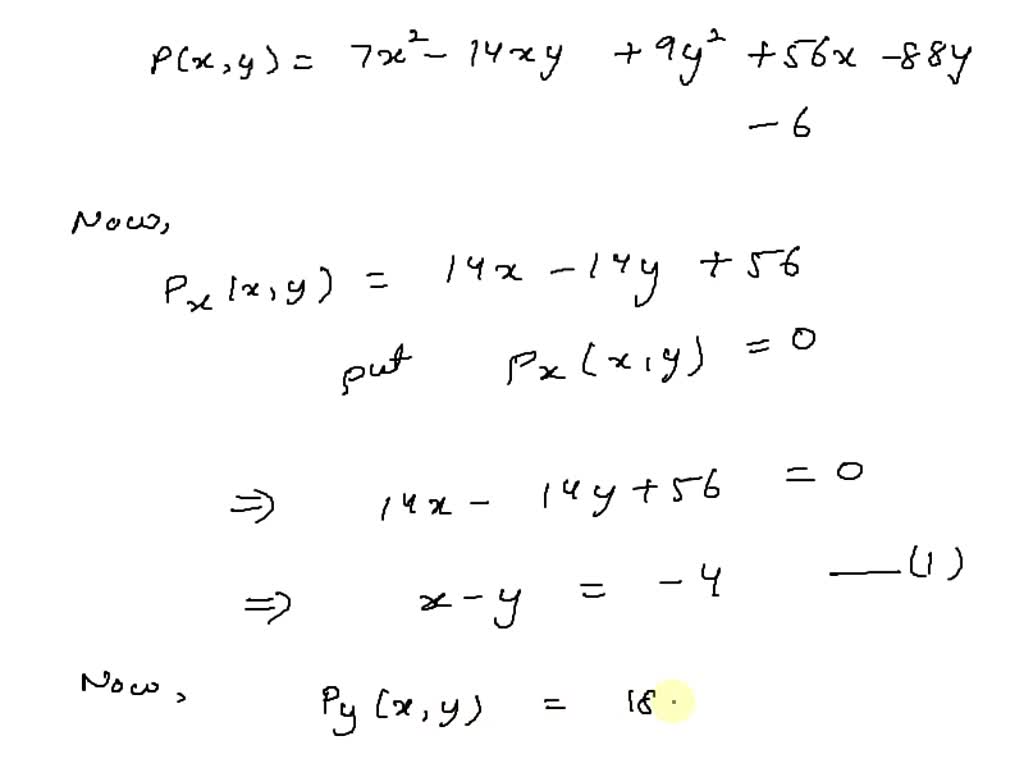 P(x,y) = 7x² - 14xy + 9y² + 56x - 88y
- 6
Now,
Pₓ(x,y) = 14x - 14y + 56
put Pₓ(x,y) = 0
⇒ 14x - 14y + 56 = 0
⇒ x - y = -4 —(1)
Now, Py(x,y) = 18